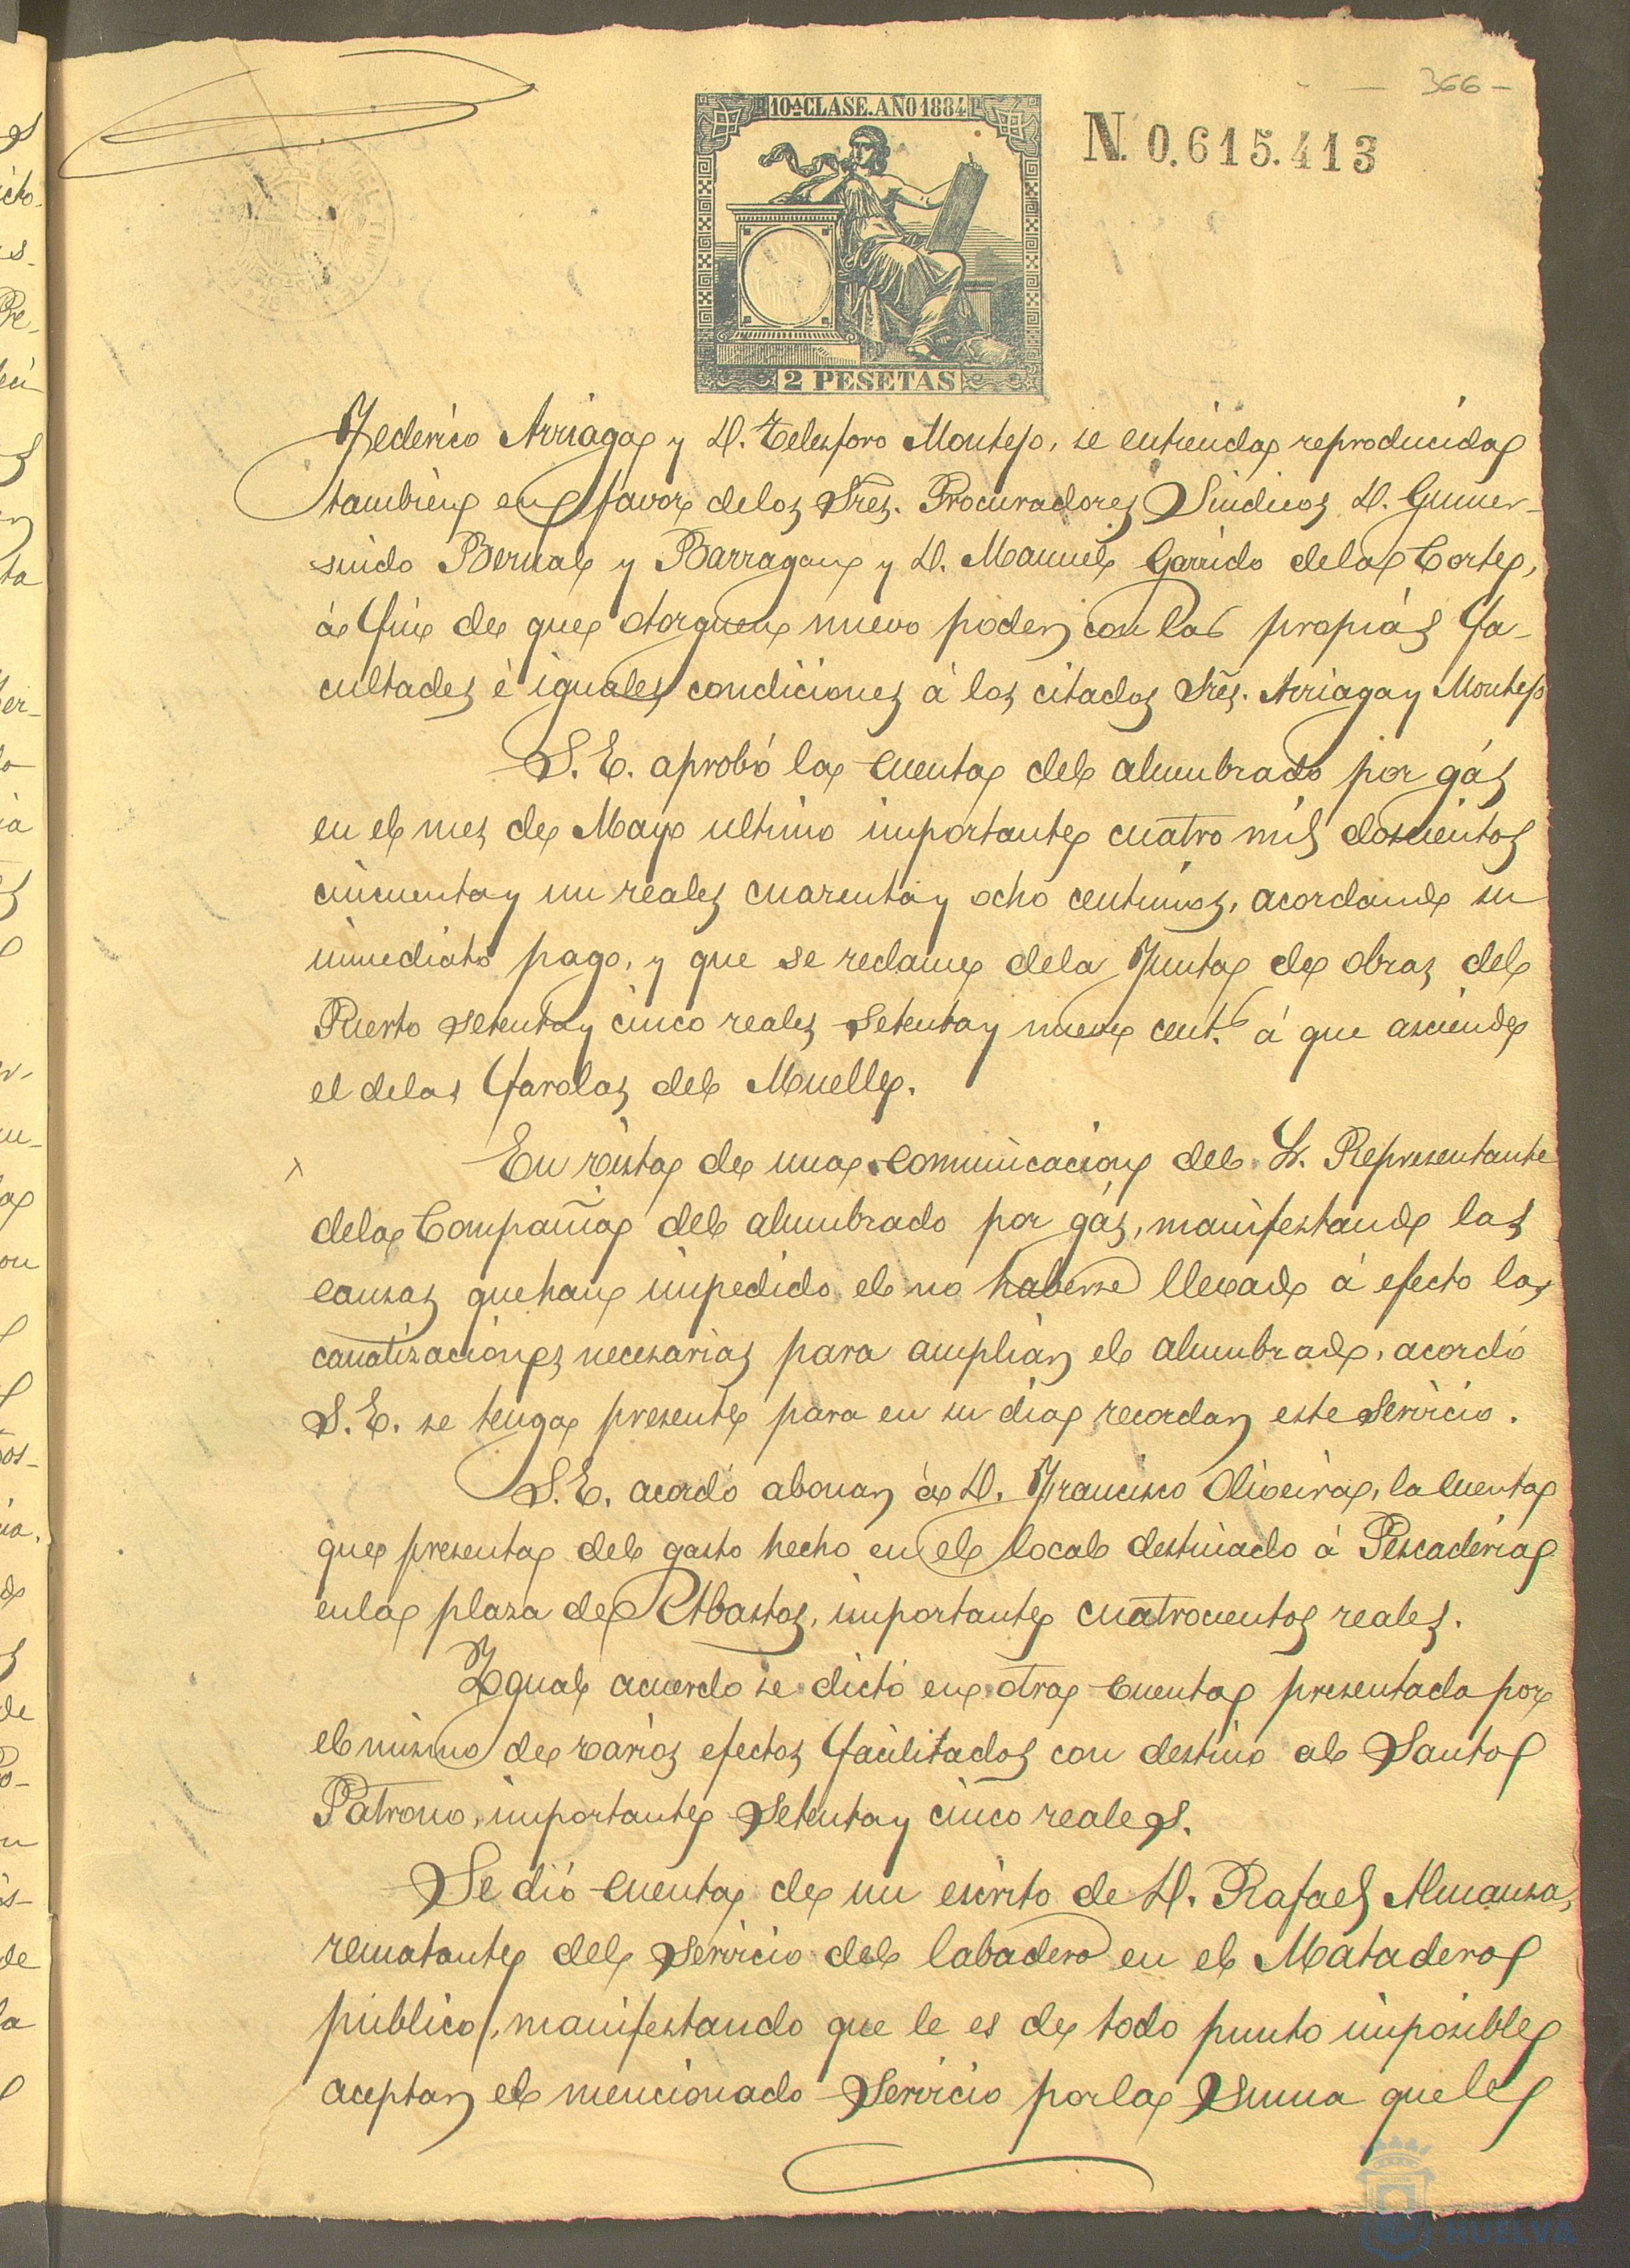 366
10ª CLASE. AÑO 1884
N. 0.615.413
2 PESETAS
Federico Arriaga y D. Telesforo Montejo, se entienda reproducida
tambien en favor delos Sres. Procuradores Sindicos D. Gumer-
sindo Bernal y Barragan y D. Manuel Garrido dela Corte,
á fin de que otorguen nuevo poder con las propias fa-
cultades é iguales condiciones á los citados Sres. Arriaga y Montejo
S. E. aprobó la cuenta del alumbrado por gás
en el mes de Mayo ultimo importante cuatro mil doscientos
cincuenta y un reales cuarenta y ocho centimos, acordando su
inmediato pago, y que se reclame dela Junta de obras del
Puerto setenta y cinco reales setenta y nueve cent.s á que asciende
el delas farolas del Muelle.
En vista de una comunicacion del Sr. Representante
dela Compañia del alumbrado por gás, manifestando las
causas que han impedido el no haberse llevado á efecto las
canalizaciones necesarias para ampliar el alumbrado, acordó
S. E. se tenga presente para en su dia recordar este servicio.
S. E. acordó abonar á D. Francisco Oliveira, la cuenta
que presenta del gasto hecho en el local destinado á Pescaderia
enla plaza de Abastos, importante cuatrocientos reales.
Igual acuerdo se dictó en otra cuenta presentada por
el mismo de varios efectos facilitados con destino al Santo
Patrono, importante setenta y cinco reales.
Se dió cuenta de un escrito de D. Rafael Almansa,
rematante del servicio del labadero en el Matadero
publico, manifestando que le es de todo punto imposible
aceptar el mencionado servicio por la suma que le
HUELVA